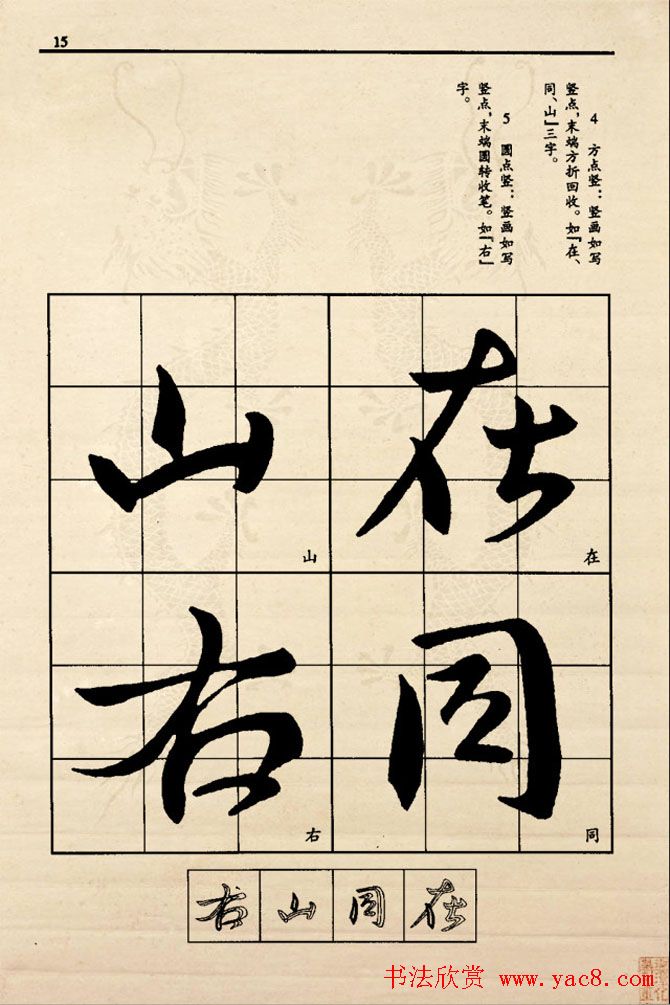 15
4 方点竖：竖画如写
竖点，末端方折回收。如『在、
同、山』三字。
5 圆点竖：竖画如写
竖点，末端圆转收笔。如『右』
字。
在
在
同
同
山
山
右
右
右山同在
书法欣赏 www.yac8.com